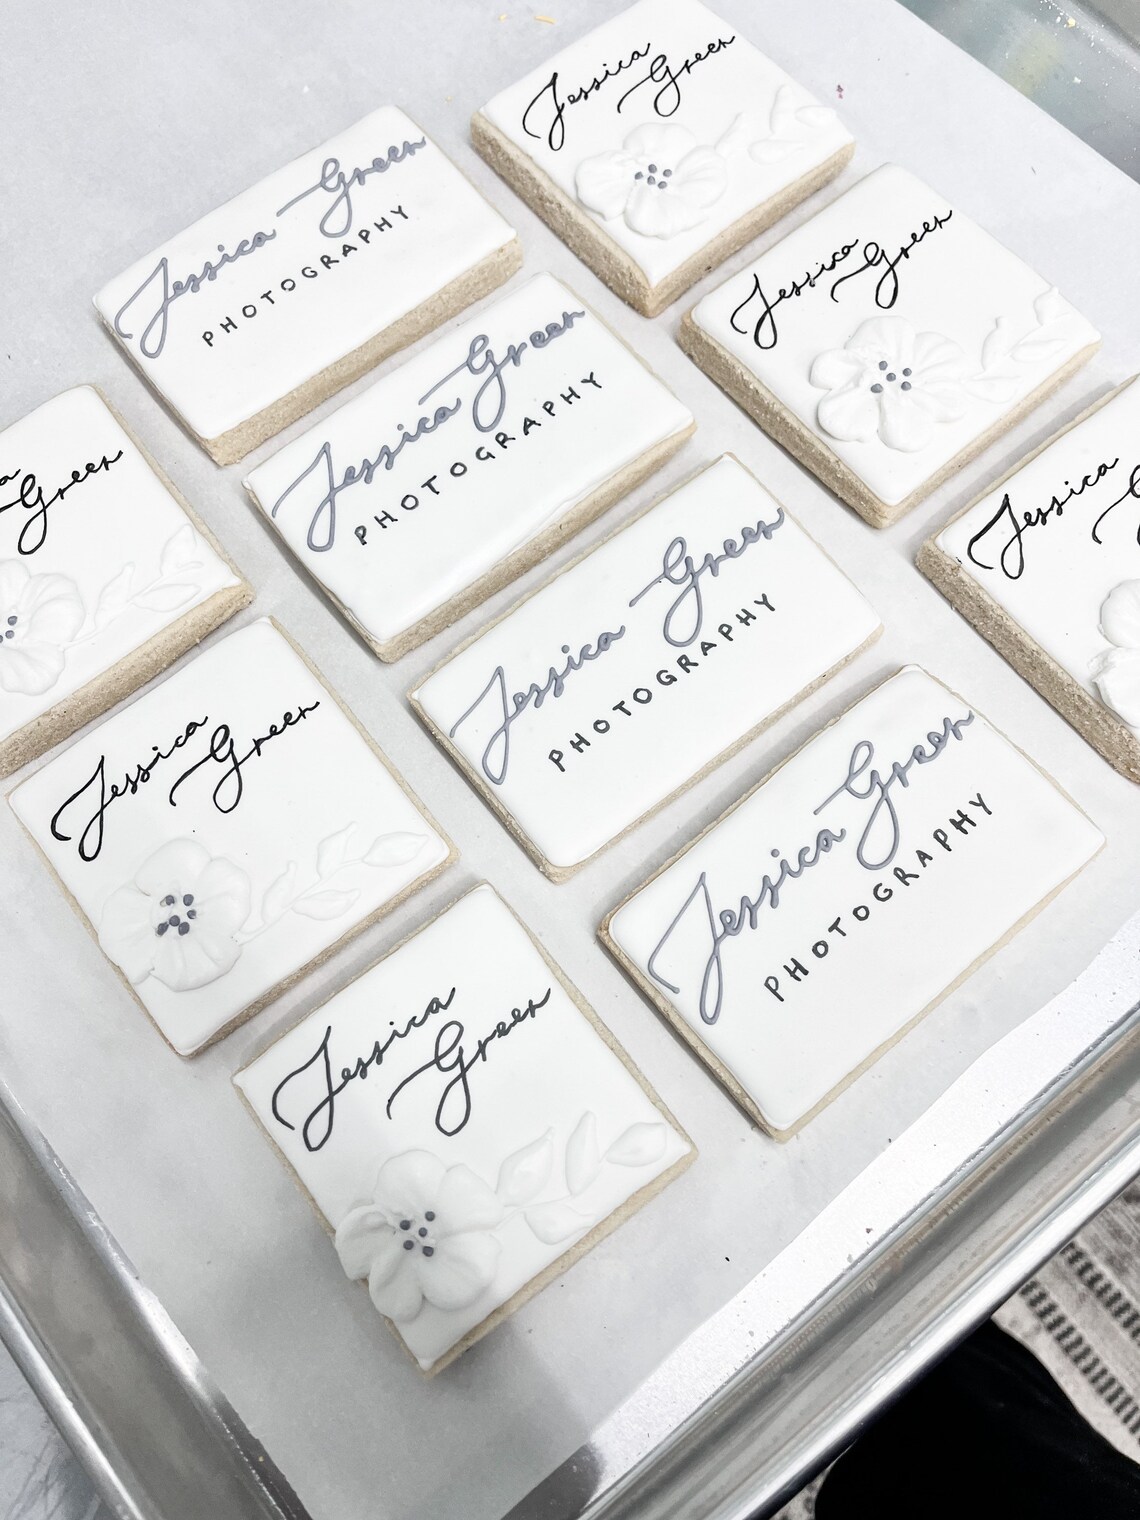 Jessica
Green
Jessica Green
PHOTOGRAPHY
Jessica
Green
Jessica Green
PHOTOGRAPHY
Green
Jessica Green
PHOTOGRAPHY
Jessica
Jessica
Green
Jessica Green
PHOTOGRAPHY
Jessica
Green